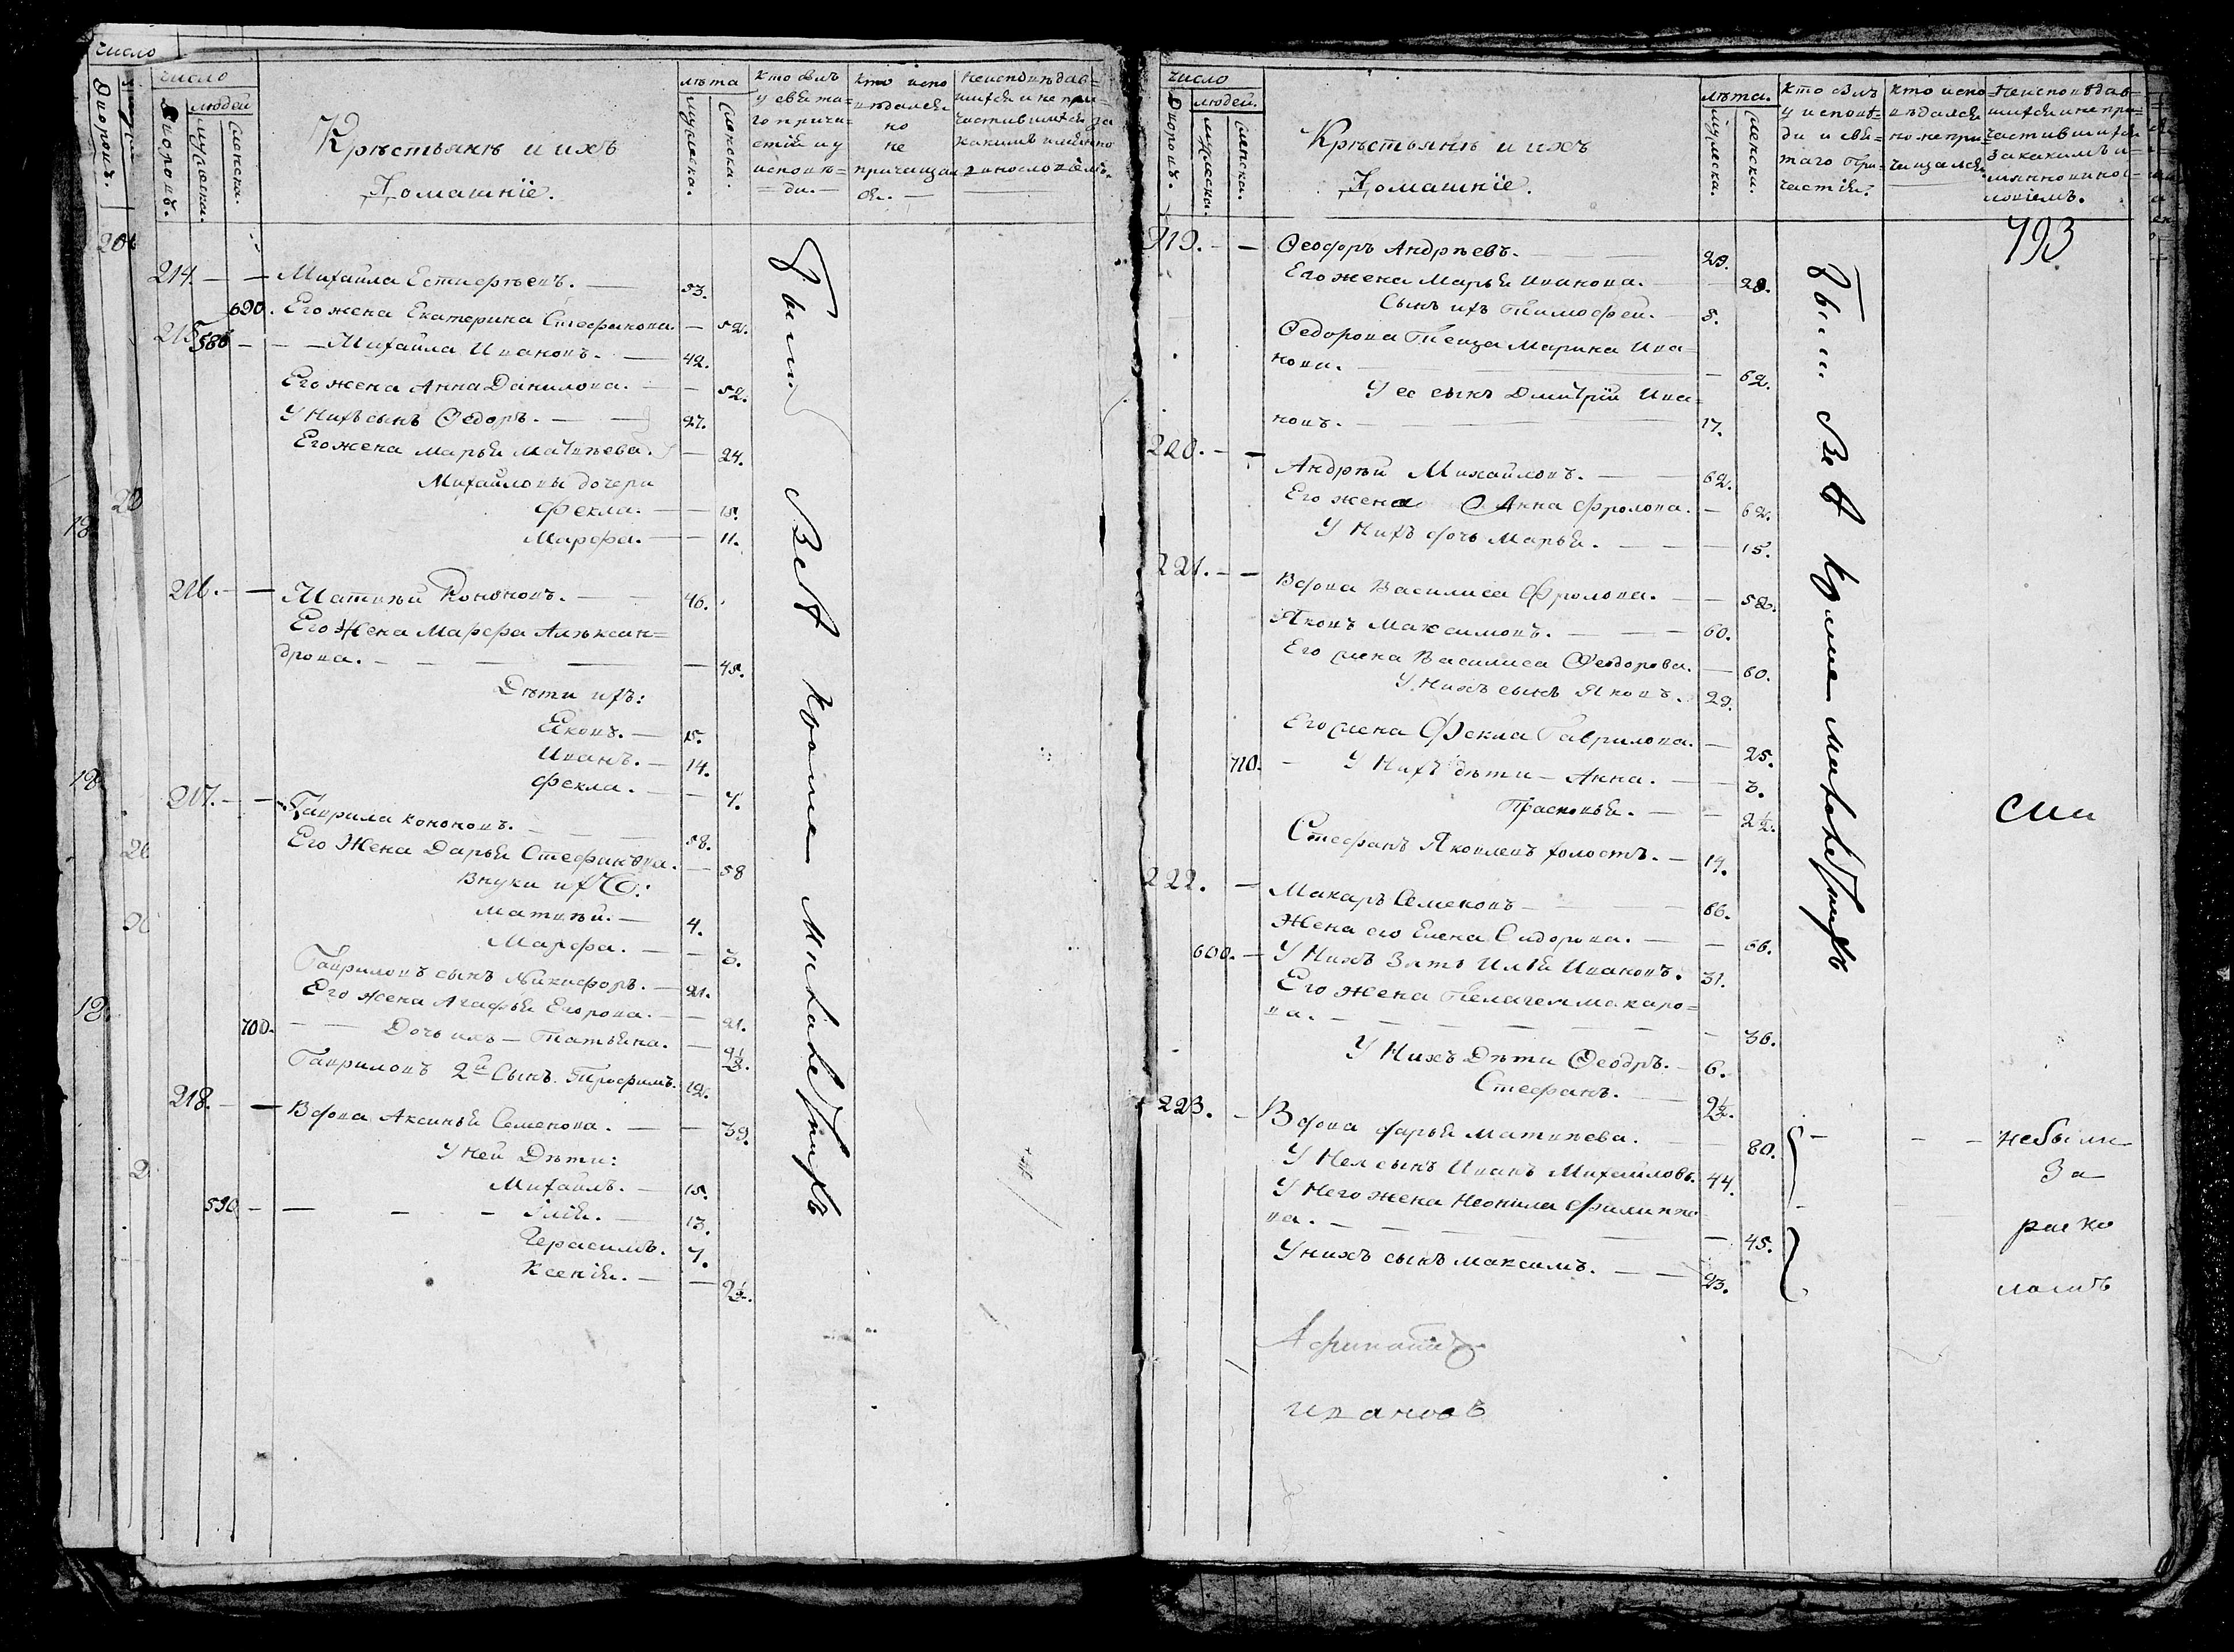 число
Дворовъ.
число
Дворовъ.
людей
мужеска.
женска.
Крѣстьянѣ и ихъ
Домашніе.
лѣта
мужеска.
женска.
кто былъ
у свята=
го прича=
стія и у
исповѣ=
=ди.=
кто испо
вѣдался
но
не
причащал
ся.
неисповѣдав=
шихся и не при
частившихся за
какимъ имянно
винословіемъ.
214. Михайла Естифѣевъ. 53.
690. Его жена Екатерина Стефанова. 52.
215 586 Михайла Ивановъ. 42.
Его жена Анна Данилова. 52.
У Нихъ сынъ Ѳедоръ. 27.
Его жена Марья Матвѣева. 24.
Михайловы дочери
Фекла. 15.
Марфа. 11.
216. Матвѣй Кононовъ. 46.
Его Жена Марфа Алѣксан=
дрова. 45.
Дѣти ихъ:
Яковъ. 15.
Иванъ. 14.
Фекла. 7.
217. Гаврила Кононовъ. 58.
Его Жена Дарья Стефанова. 58
Внуки ихъ:
Матвѣй. 4.
Марфа. 3.
Гавриловъ сынъ Никифоръ. 21.
Его жена Агафья Егорова. 21.
700. Дочь ихъ Татьяна. 2½.
Гавриловъ 2й Сынъ Трофимъ. 12.
218. Вдова Аксинья Семенова. 39.
У Ней Дѣти:
Михайлъ. 15.
590 Илія. 13.
Герасимъ. 7.
Ксенія. 2½.
Были всѣ кроме малолетнихъ
число
Дворовъ.
людей.
мужеска.
женска.
Крѣстьянѣ и ихъ
Домашніе.
лѣта.
мужеска.
женски.
кто былъ
у исповѣ=
ди и свя=
таго При=
частія.
кто испо
вѣдался
но непри=
чащался.
Неисповѣдав=
шихся и не при=
частившихся
за какимъ и=
мянно винос=
ловіемъ.
793
219. Ѳеодоръ Андрѣевъ. 29.
Его жена Марья Иванова. 28.
Сынъ ихъ Тимофей. 5.
Ѳедорова Теща Марина Ива=
нова. 62.
У ее сынъ Дмитрій Ива=
новъ. 17.
220. Андрѣй Михайловъ. 62.
Его жена Анна Фролова. 62.
У Нихъ дочь Марья. 15.
221. Вдова Василиса Фролова. 52.
Яковъ Максимовъ. 60.
Его жена Василиса Ѳеодорова. 60.
У Нихъ сынъ Яковъ. 29.
Его жена Фекла Гаврилова. 25.
710. У Нихъ дѣти Анна. 3.
Прасковья. 2½.
Стефанъ Яковлевъ холостъ. 14.
222. Макаръ Семеновъ 66.
Жена его Елена Сидорова. 66.
600. У Нихъ Зять Илья Ивановъ. 31.
Его жена Пелагея Макаро=
ва. 36.
У Нихъ Дѣти Ѳеодръ. 6.
Стефанъ. 2½.
223. Вдова Дарья Матвѣева. 80.
У Нея сынъ Иванъ Михайловъ. 44.
У Него жена Неонила Филиппо
ва. 45.
У нихъ сынъ Максимъ. 23.
Были всѣ кроме малолетнихъ
сии
небыли
За
раско
ломъ
ивановъ